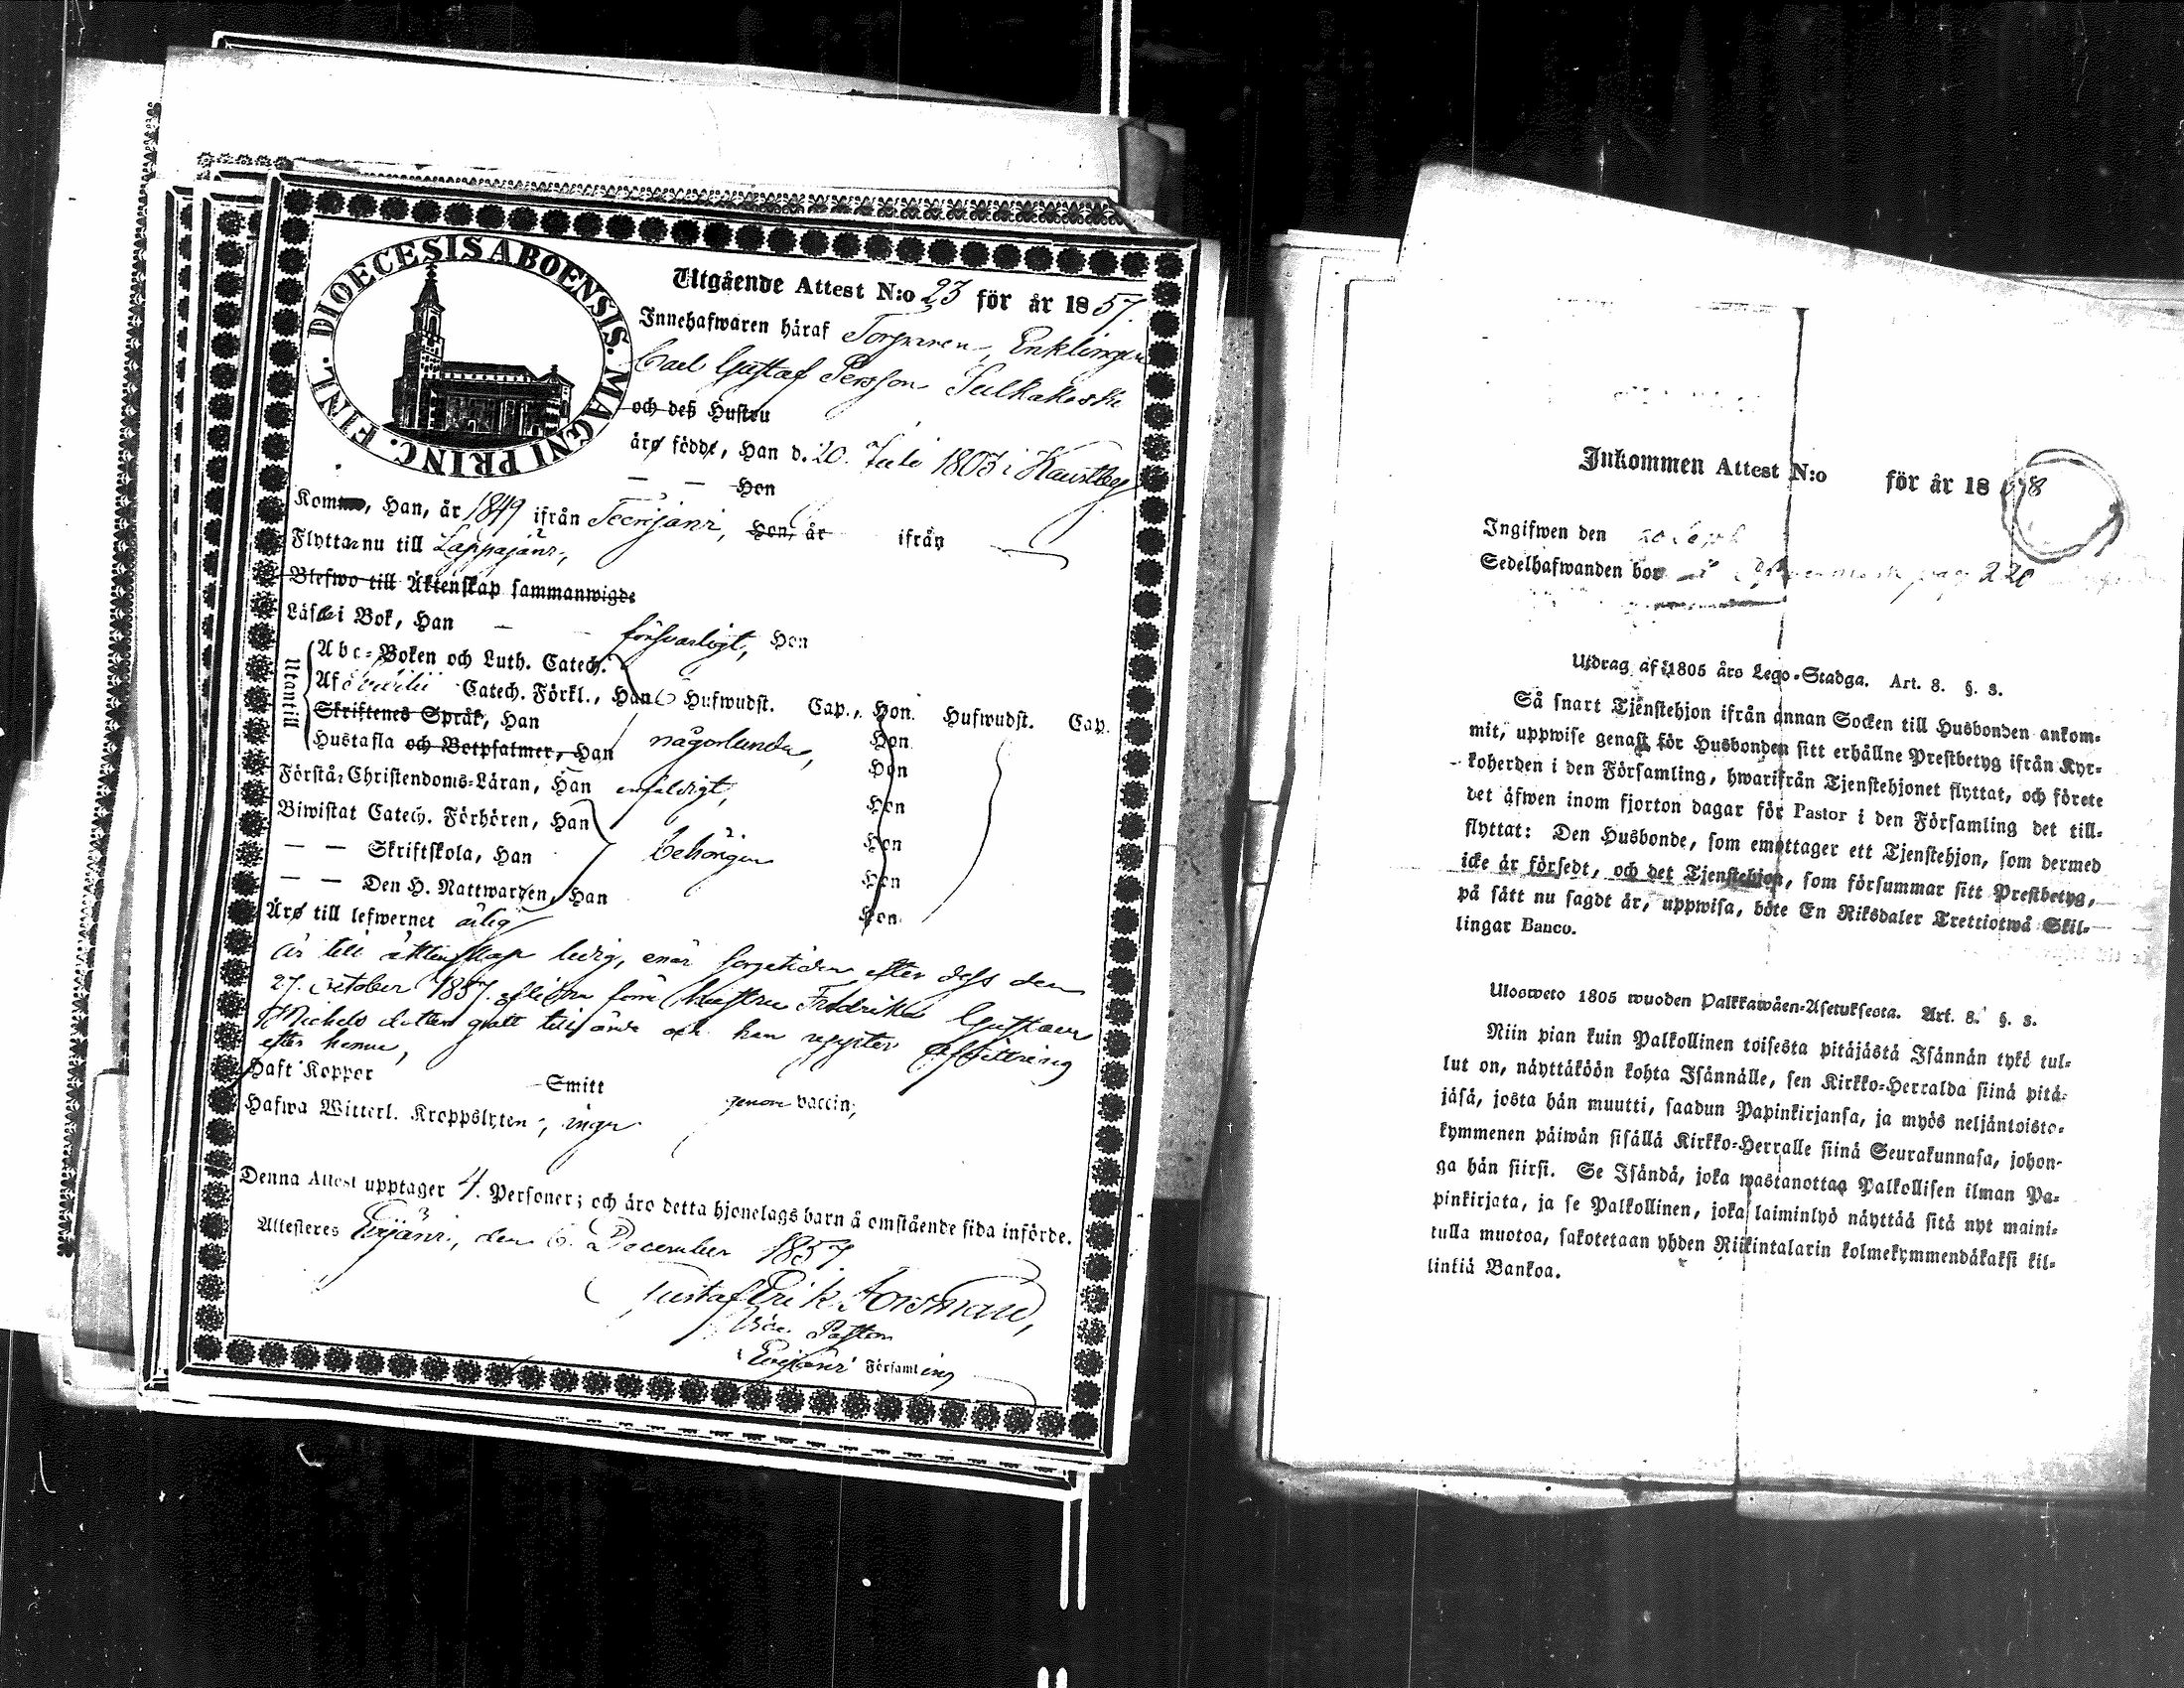 DIOECESIS ABOENSIS. MAGNI PRINC. FINL.
Utgående Attest N:o 23 för år 1857.
Innehafwaren häraf Torparen, Enklingen
Carl Gustaf Persson Sulkakoski
och deß Hustru
äro födde, Han d. 20. Juli 1803 i Kaustby
— — Hon
Kommo, Han, år 1849 ifrån Teerijärvi, Hon, år ifrån
Flyttar nu till Lappajärvi,
Blefwo till Äktenskap sammanwigde
Läser i Bok, Han — — försvarligt, Hon
Utantill
Abc-Boken och Luth. Catech.
Af Svebilii Catech. Förkl., Han 6 Hufwudst. Cap., Hon Hufwudst. Cap.
Skriftenes Språk, Han Hon
Hustafla och Botpsalmer, Han någorlunda, Hon
Förstår Christendoms-Läran, Han enfaldigt, Hon
Biwistat Catech. Förhören, Han Hon
— — Skriftskola, Han behörigen Hon
— — Den H. Nattwarden, Han Hon
Äro till lefwernet ärlig
är till äktenskap ledig, enär sorgetiden efter dess den
27. October 1857. aflidna förra hustru Fredrika Gustava
Michels dotter gått till ända och han uppter afvittring
efter henne,
Haft Koppor Smitt genom vaccin,
Hafwa Witterl. Kroppslyten, inga
Denna Attest upptager 4. Personer; och äro detta hjonelags barn å omstående sida införde.
Attesteres Evijärvi, den 6. December 1857.
Gustaf Erik Forsman,
Vice Pastor
Evijärvi Församling
Inkommen Attest N:o för år 1858
Ingifwen den 20 Sept
Sedelhafwanden bor pag 220
Utdrag af 1805 års Lego-Stadga. Art. 8. §. 3.
Så snart Tjenstehjon ifrån annan Socken till Husbonden ankom-
mit, uppwise genast för Husbonden sitt erhållne Prestbetyg ifrån Kyr-
koherden i den Församling, hwarifrån Tjenstehjonet flyttat, och förete
det äfwen inom fjorton dagar för Pastor i den Församling det till-
flyttat: Den Husbonde, som emottager ett Tjenstehjon, som dermed
icke är försedt, och det Tjenstehjon, som försummar sitt Prestbetyg,
på sätt nu sagdt är, uppwisa, böte En Riksdaler Trettiotwå Skil-
lingar Banco.
Ulosweto 1805 wuoden Palkkawäen-Asetuksesta. Art. 8. §. 3.
Niin pian kuin Palkollinen toisesta pitäjästä Isännän tykö tul-
lut on, näyttäköön kohta Isännälle, sen Kirkko-Herralda siinä pitä-
jäsä, josta hän muutti, saadun Papinkirjansa, ja myös neljäntoista-
kymmenen päiwän sisällä Kirkko-Herralle siinä Seurakunnasa, johon-
ga hän siirsi. Se Isändä, joka wastanottaa Palkollisen ilman Pa-
pinkirjata, ja se Palkollinen, joka laiminlyö näyttää sitä nyt maini-
tulla muotoa, sakotetaan yhden Riikintalarin kolmekymmendäkaksi kil-
linkiä Bankoa.